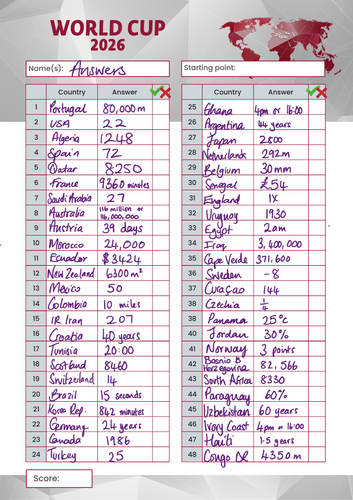 WORLD CUP
2026
Name(s): Answers
Starting point:
Country Answer
1 Portugal 80,000 m
2 USA 22
3 Algeria 1248
4 Spain 72
5 Qatar 8250
6 France 9360 minutes
7 Saudi Arabia 27
8 Australia 116 million or 116,000,000
9 Austria 39 days
10 Morocco 24,000
11 Ecuador $3424
12 New Zealand 6300 m²
13 Mexico 50
14 Colombia 10 miles
15 IR Iran 207
16 Croatia 40 years
17 Tunisia 20:00
18 Scotland 8460
19 Switzerland 14
20 Brazil 15 seconds
21 Korea Rep. 842 minutes
22 Germany 24 years
23 Canada 1986
24 Turkey 25
Score:
Country Answer
25 Ghana 4pm or 16:00
26 Argentina 44 years
27 Japan 2800
28 Netherlands 292m
29 Belgium 30mm
30 Senegal £54
31 England 1X
32 Uruguay 1930
33 Egypt 2am
34 Iraq 3,400,000
35 Cape Verde 371,600
36 Sweden -8
37 Curaçao 144
38 Czechia
38 Panama 25°C
40 Jordan 30%
41 Norway 3 points
42 Bosnia & Herzegovina 82,566
43 South Africa 8330
44 Paraguay 60%
45 Uzbekistan 60 years
46 Ivory Coast 4pm or 16:00
47 Haiti 1.5 years
48 Congo DR 4350m